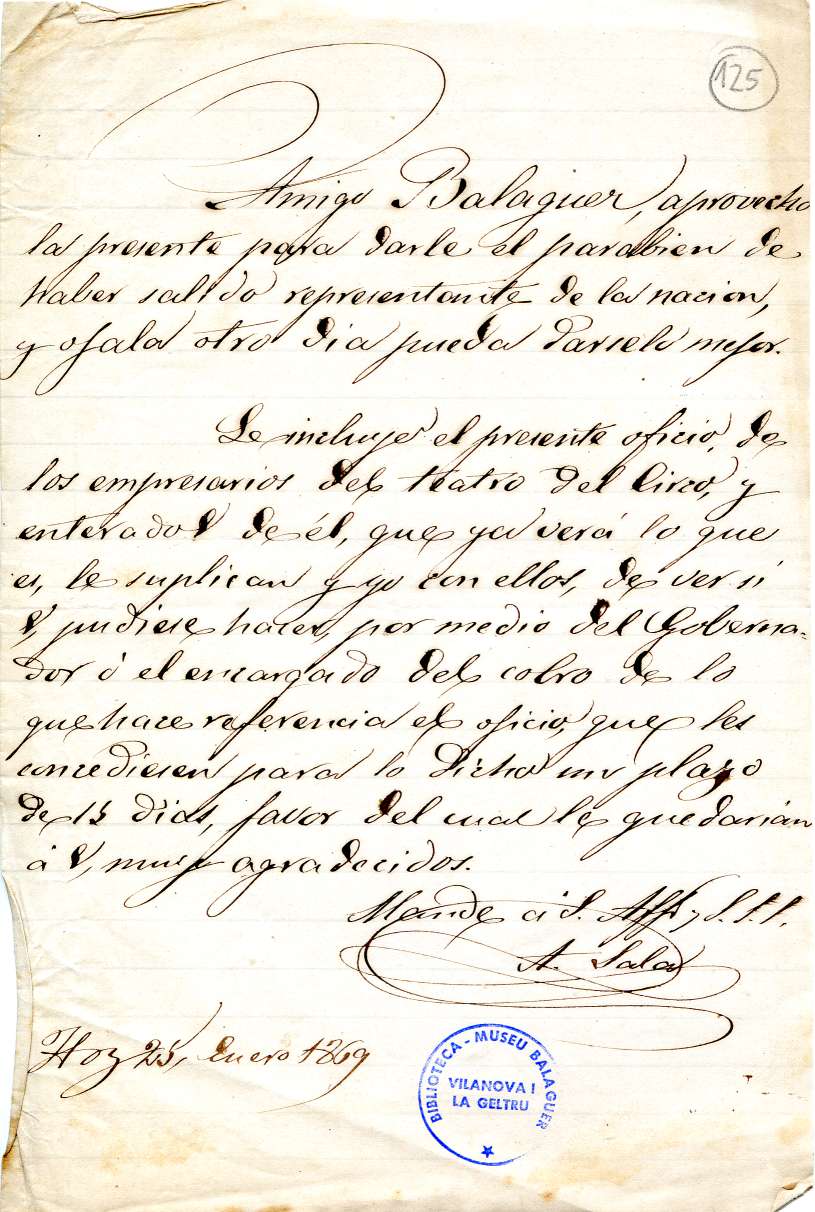 125
Amigo Balaguer, aprovecho
la presente para darle el parabien de
haber salido representante de la nacion,
y ojala otro dia pueda darselo mejor.
Le incluyo el presente oficio, de
los empresarios del teatro del Circo, y
enterado V de él, que ya verá lo que
es, le suplican y yo con ellos, de ver si
V, pudiese hacer, por medio del Goberna-
dor ó el encargado del cobro de lo
que hace referencia el oficio, que les
concediesen para lo dicho un plazo
de 15 dias, favor del cual le quedarián
á V, muy agradecidos.
Mande á S. Affº y S.S.S.
A. Sala
Hoy 25, Enero 1869
BIBLIOTECA - MUSEU BALAGUER
VILANOVA I
LA GELTRU